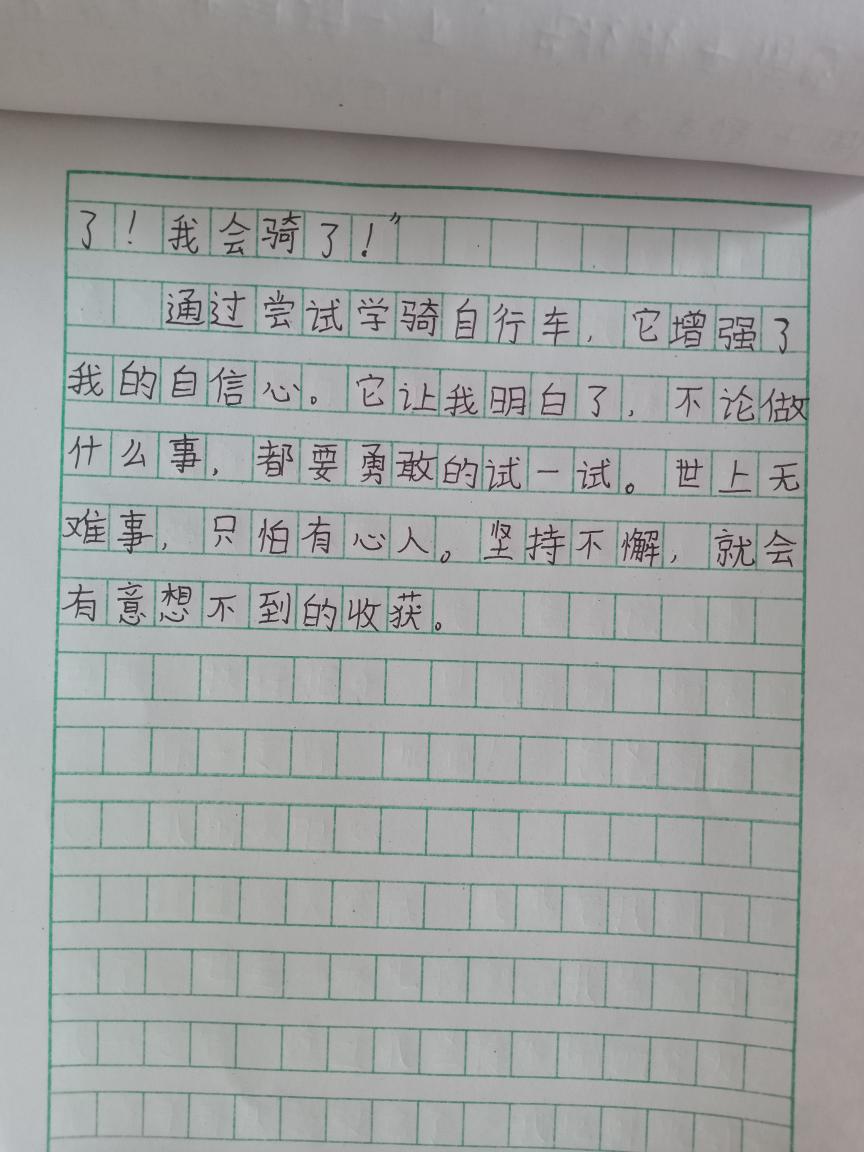 了！我会骑了！”
通过尝试学骑自行车，它增强了
我的自信心。它让我明白了，不论做
什么事，都要勇敢的试一试。世上无
难事，只怕有心人。坚持不懈，就会
有意想不到的收获。